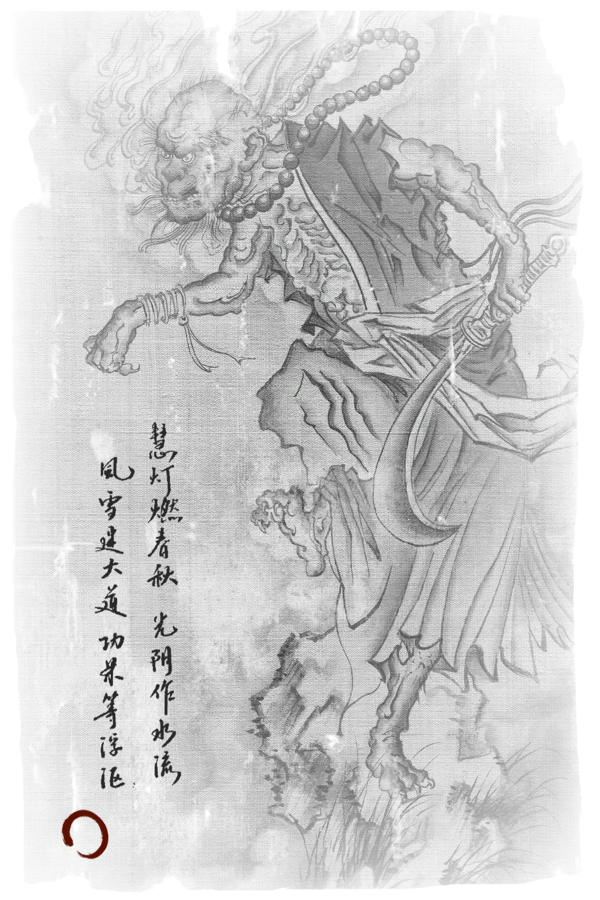 慧灯燃春秋 光阴作水流
风雪迷大道 功果等浮沤